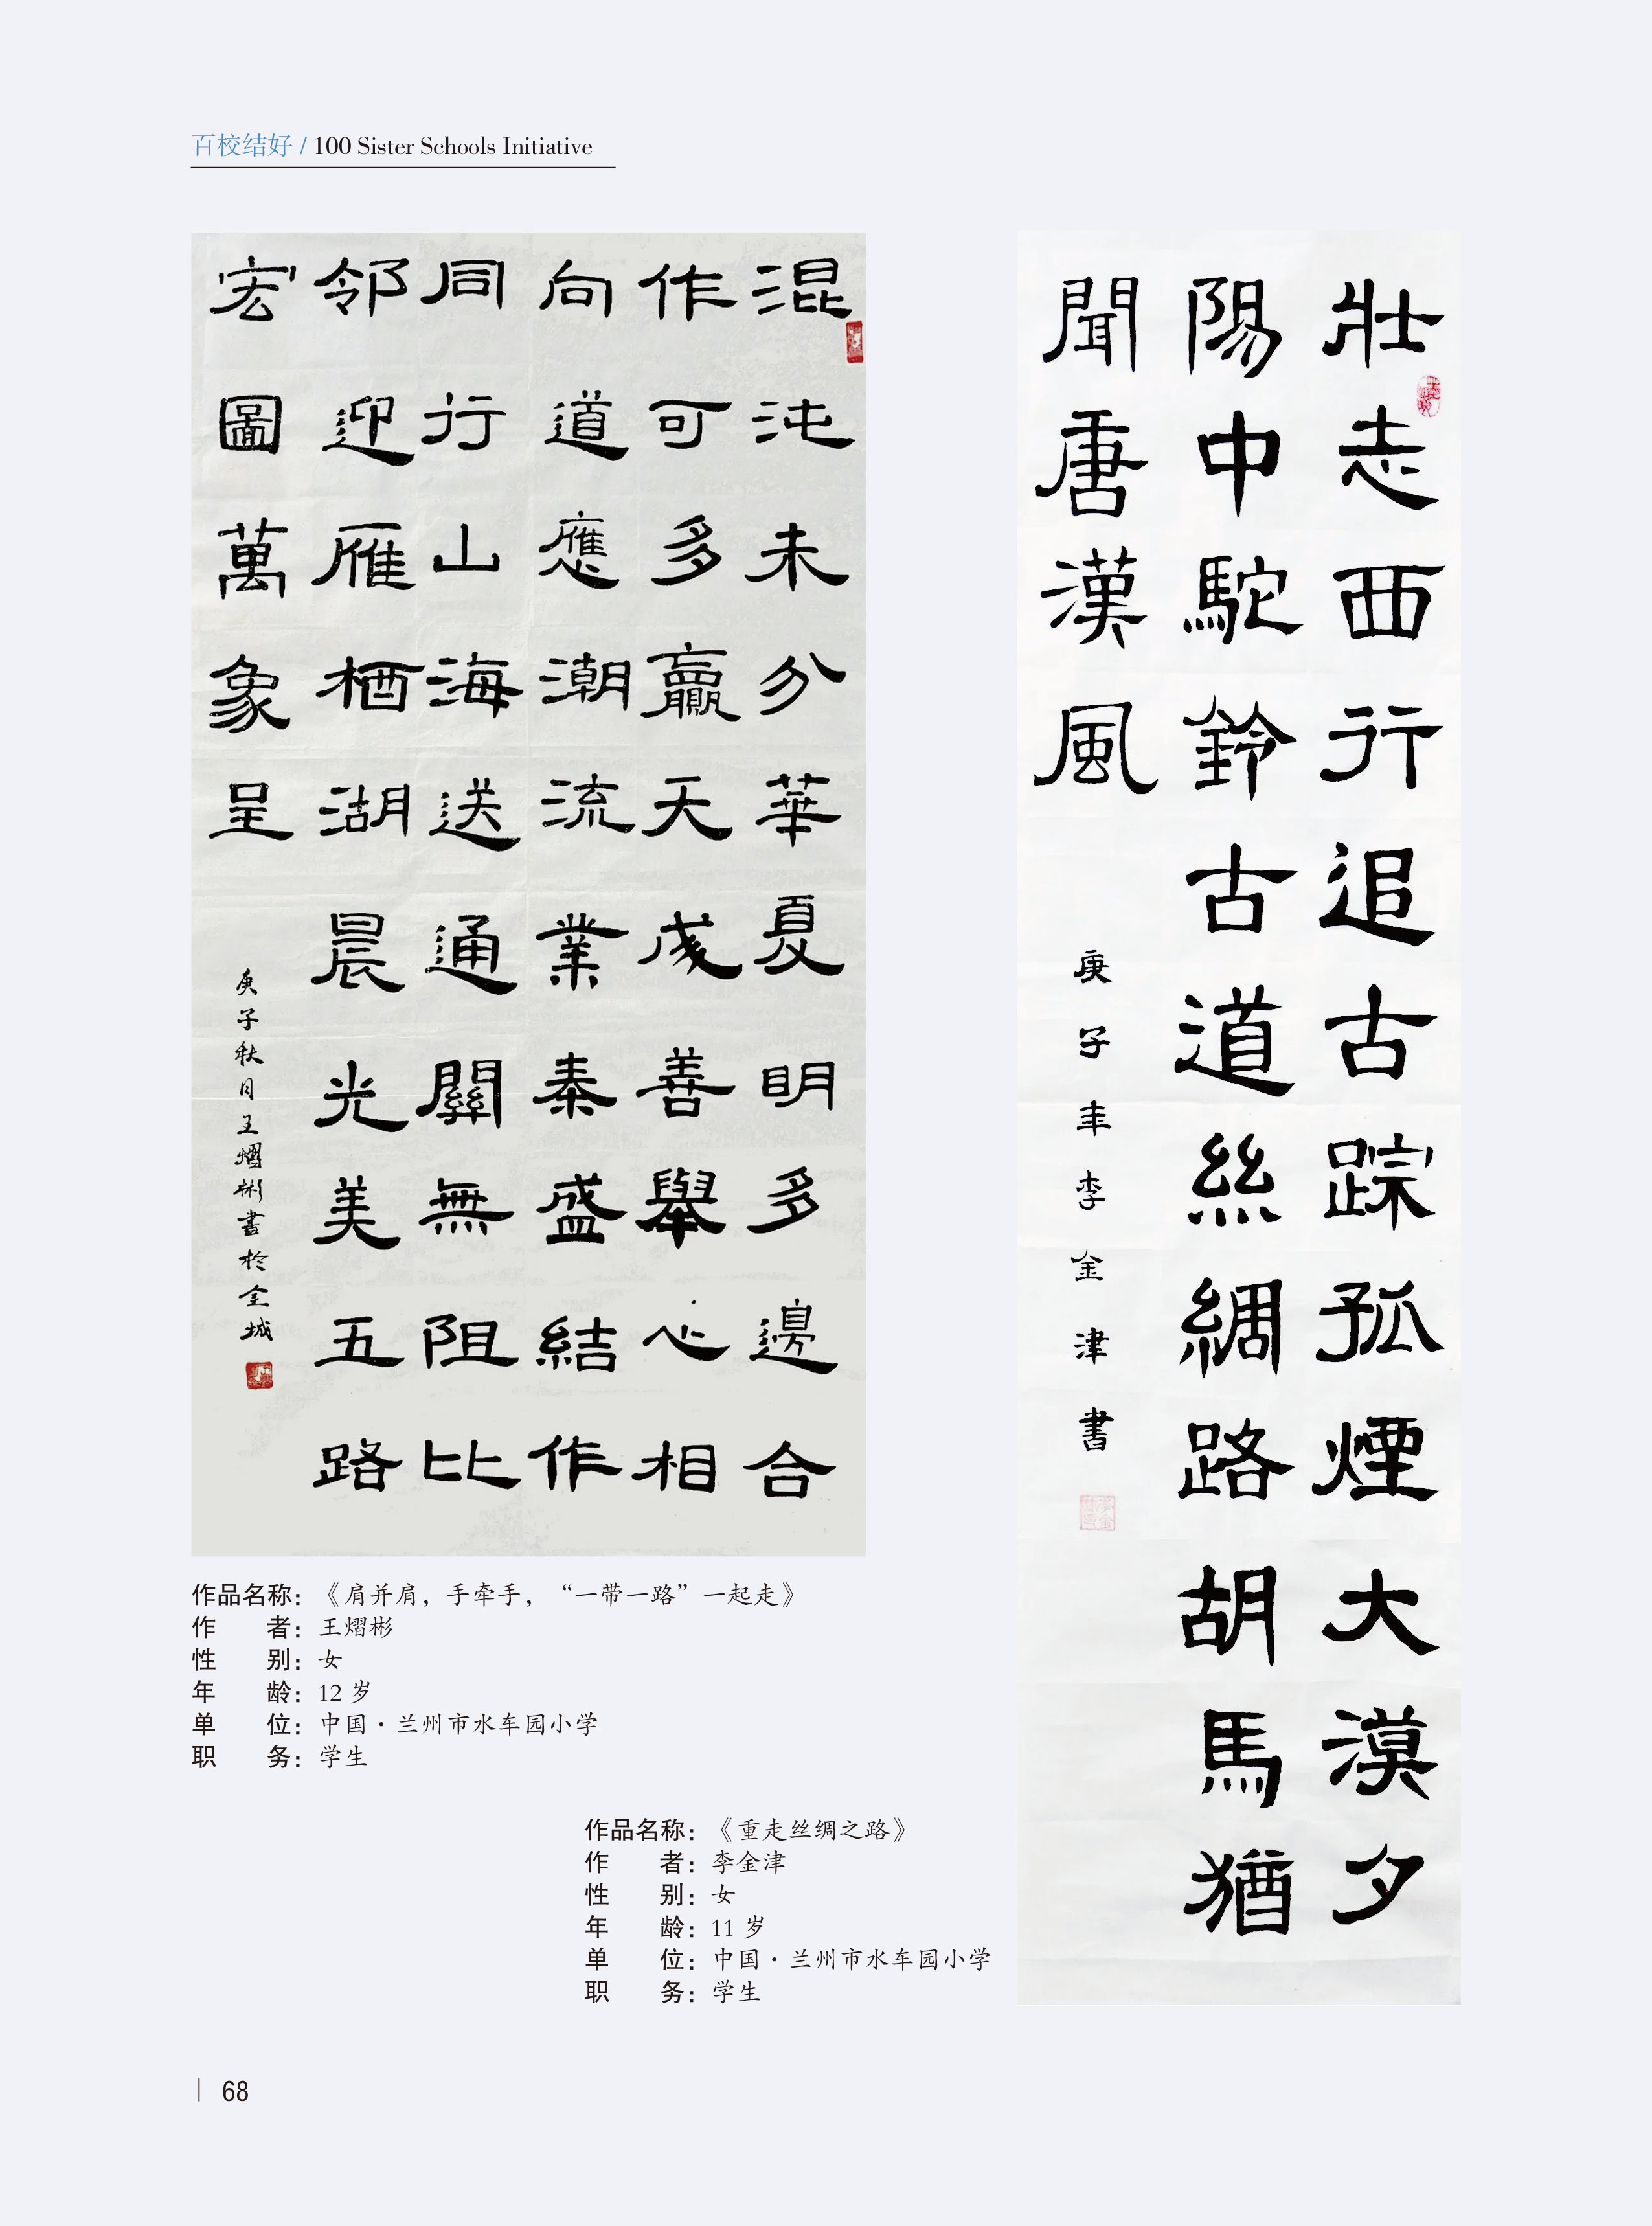 百校结好 / 100 Sister Schools Initiative
混沌未分華夏明多邊合
作可多贏天成善舉心相
向道應潮流業泰盛結作
同行山海送通關無阻比
邻迎雁栖湖晨光美五路
宏圖萬象呈
庚子秋月王熠彬書於金城
壯志西行追古踪孤煙大漠夕
陽中駝鈴古道絲綢路胡馬猶
聞唐漢風
庚子年李金津書
作品名称：《肩并肩，手牵手，“一带一路”一起走》
作者：王熠彬
性别：女
年龄：12 岁
单位：中国·兰州市水车园小学
职务：学生
作品名称：《重走丝绸之路》
作者：李金津
性别：女
年龄：11 岁
单位：中国·兰州市水车园小学
职务：学生
68